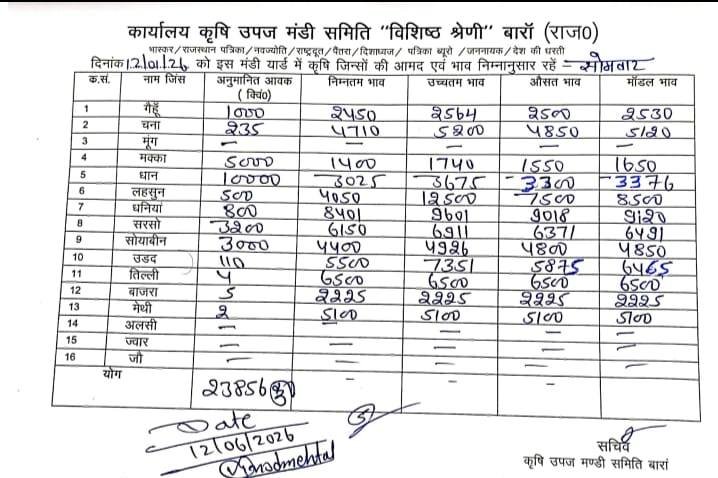 कार्यालय कृषि उपज मंडी समिति "विशिष्ठ श्रेणी" बारॉ (राज0)
भास्कर/राजस्थान पत्रिका/नवज्योति/राष्ट्रदूत/पैंतरा/दिशाध्वज/ पत्रिका ब्यूरो /जननायक/देश की धरती
दिनांक 12/01/26 को इस मंडी यार्ड में कृषि जिन्सों की आमद एवं भाव निम्नानुसार रहें = सोमवार
क.सं. नाम जिंस अनुमानित आवक (क्विं0) निम्नतम भाव उच्चतम भाव औसत भाव मॉडल भाव
1 गैहूँ 1000 2450 2564 2500 2530
2 चना 235 4710 5200 4850 5120
3 मूंग — — — — —
4 मक्का 5000 1400 1740 1550 1650
5 धान 10000 3025 3675 3300 3376
6 लहसुन 500 4050 12500 7500 8500
7 धनियां 800 8401 9601 9018 9120
8 सरसो 3200 6150 6911 6371 6491
9 सोयाबीन 3000 4400 4926 4800 4850
10 उडद 110 5500 7351 5875 6465
11 तिल्ली 4 6500 6500 6500 6500
12 बाजरा 5 2225 2225 2225 2225
13 मेथी 2 5100 5100 5100 5100
14 अलसी — — — — —
15 ज्वार — — — — —
16 जौ — — — — —
योग 23856 — — — —
Date
12/06/2026
सचिव
कृषि उपज मण्डी समिति बारां